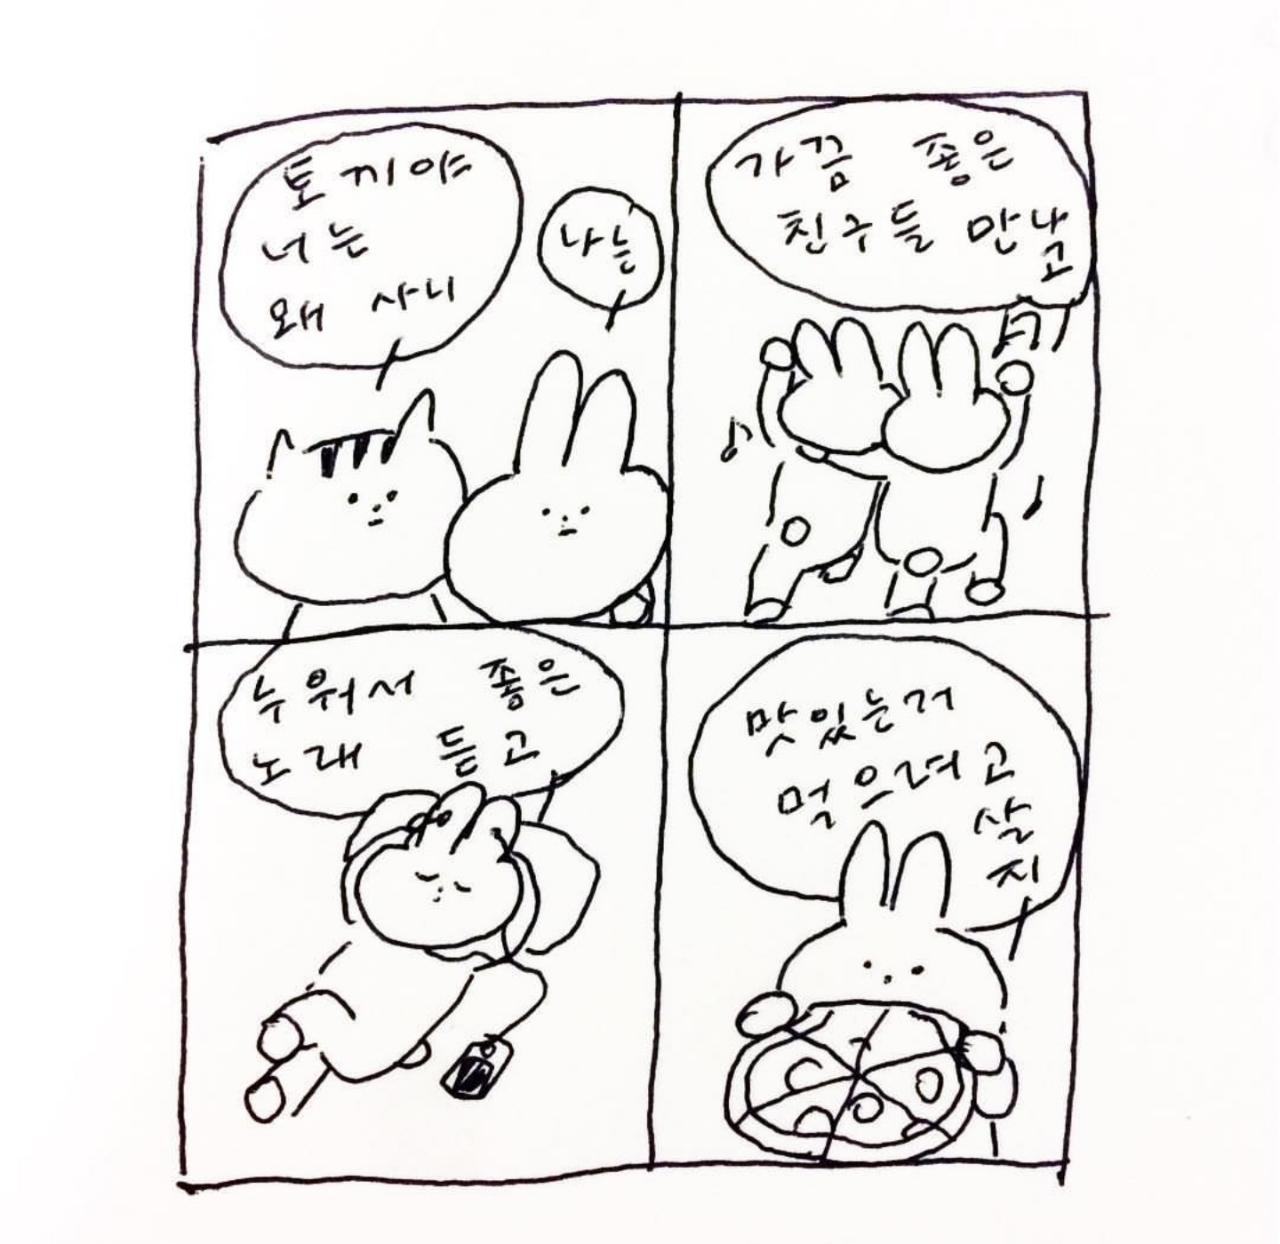 토끼야
너는
왜 사니
나는
가끔 좋은
친구들 만나
고
누워서 좋은
노래 듣고
맛있는거
먹으려고
살
지